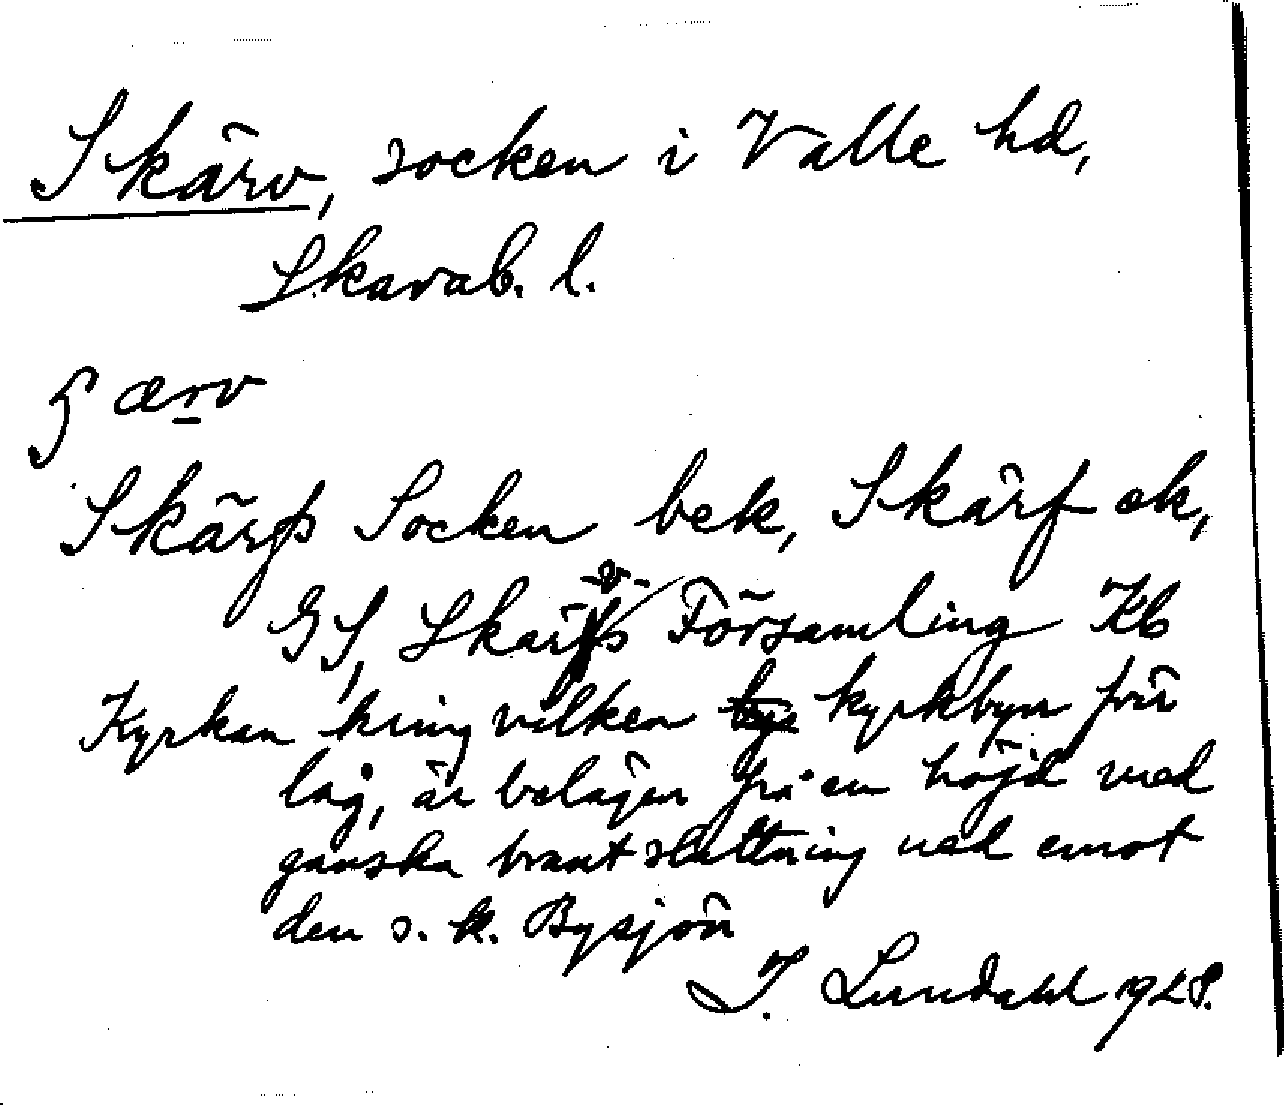 Skärv, socken i Valle hd,
Skarab. l.
ʃ ærv
Skärfs Socken bek, Skärf ek,
GS, Skärfs Församling Kb
v
Kyrkan kring vilken kyrkbyn förr
låg, är belägen på en höjd med
ganska brant sluttning ned emot
den s. k. Bysjön
I. Lundahl 1928.